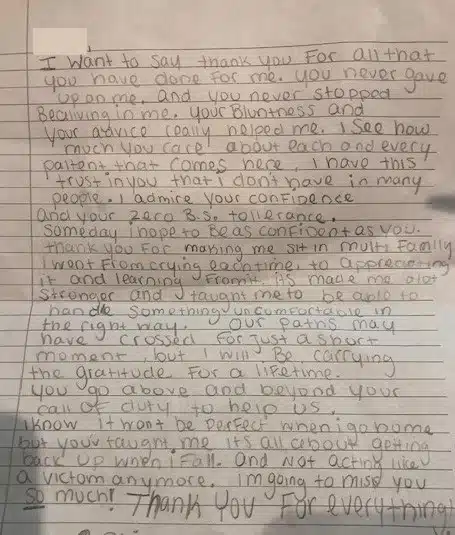 I Want to say thank you For all that
you have done for me. you never gave
up on me. And you never stopped
Becaliving in me. your Bluntness and
your advice really helped me. I see how
much you care about each and every
paitent that comes here, I have this
trust in you that I don't have in many
people. I admire your confidence
and your zero B.S. tollerance.
Someday i hope to Be as confident as you.
thank you For making me sit in multi Family
I went From crying each time, to appreciating
it and learning From it. its made me alot
stronger and taught me to be able to
handle something uncomfortable in
the right way. Our paths may
have crossed for just a short
moment, but I will Be carrying
the gratitude For a lifetime.
You go above and beyond your
call of duty to help us.
I know it wont be perfect when i go home
but your taught me its all about getting
back up when i Fall. And Not acting like
a victom anymore. im going to miss you
So much! Thank You For everything!